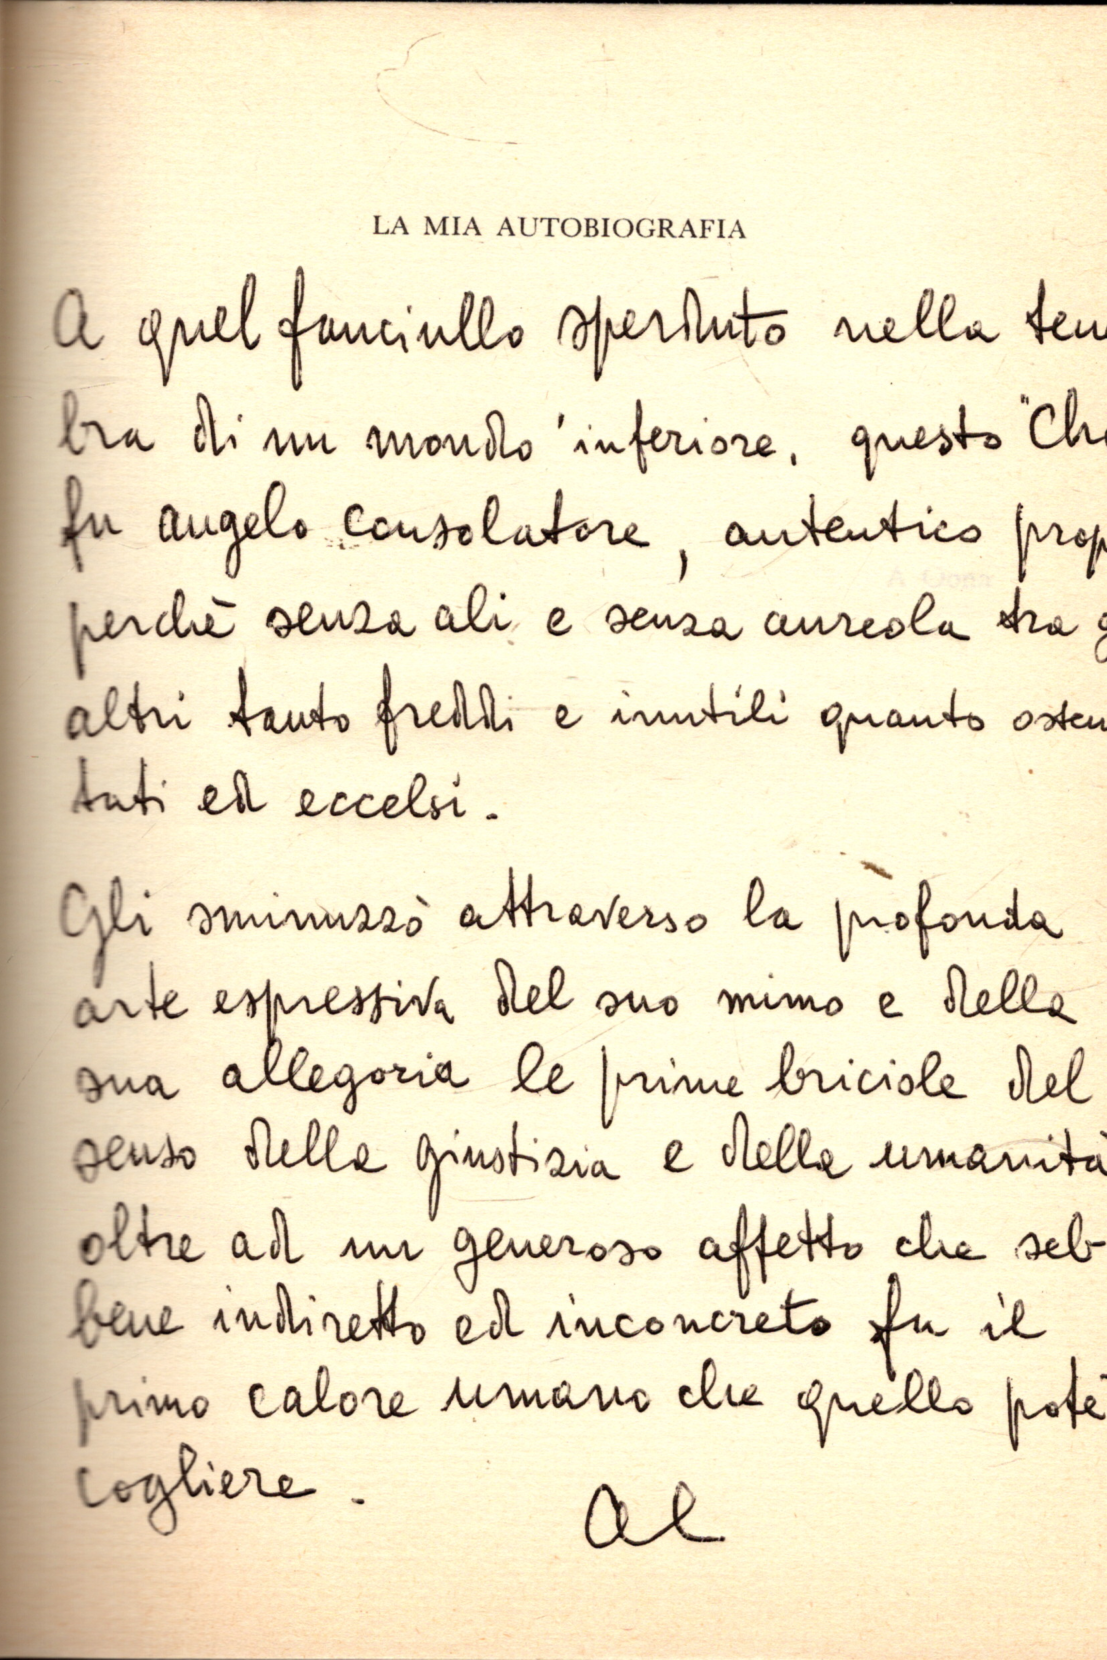 LA MIA AUTOBIOGRAFIA
A quel fanciullo sperduto nella ten
bra di un mondo inferiore, questo "Ch
fu angelo consolatore, autentico prop
perchè senza ali e senza aureola tra g
altri tanto freddi e inutili quanto osten
tati ed eccelsi.
Gli sminuzzò attraverso la profonda
arte espressiva del suo mimo e della
sua allegoria le prime briciole del
senso della giustizia e della umanità
oltre ad un generoso affetto che seb-
bene indiretto ed inconcreto fu il
primo calore umano che quello potè
cogliere.
Al